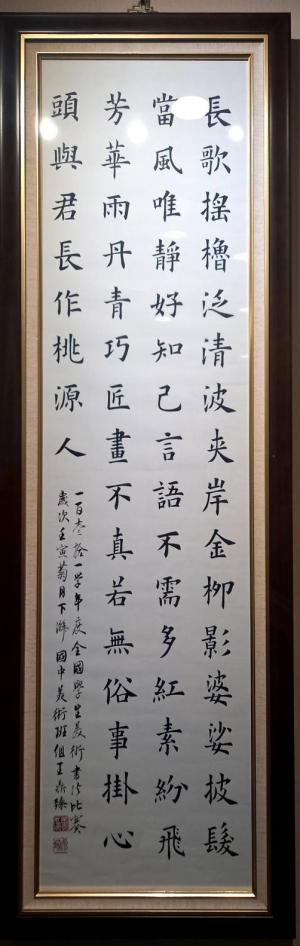 長歌搖櫓泛清波夾岸金柳影婆娑披髮
當風唯靜好知己言語不需多紅素紛飛
芳華雨丹青巧匠畫不真若無俗事掛心
頭與君長作桃源人
一百壹拾一學年度全國學生美術書法比賽
歲次壬寅菊月下澣 國中美術班組王鼎臻